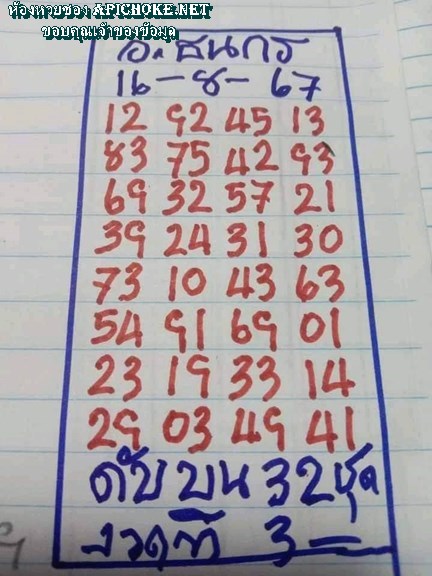 ห้องหวยซอง APICHOKE.NET
ขอบคุณเจ้าของข้อมูล
อ.ธนกร
16-8-67
12 92 45 13
83 75 42 93
69 32 57 21
39 24 31 30
73 10 43 63
54 91 69 01
23 19 33 14
29 03 49 41
ดับบน 32 ชุด
งวดที่ 3